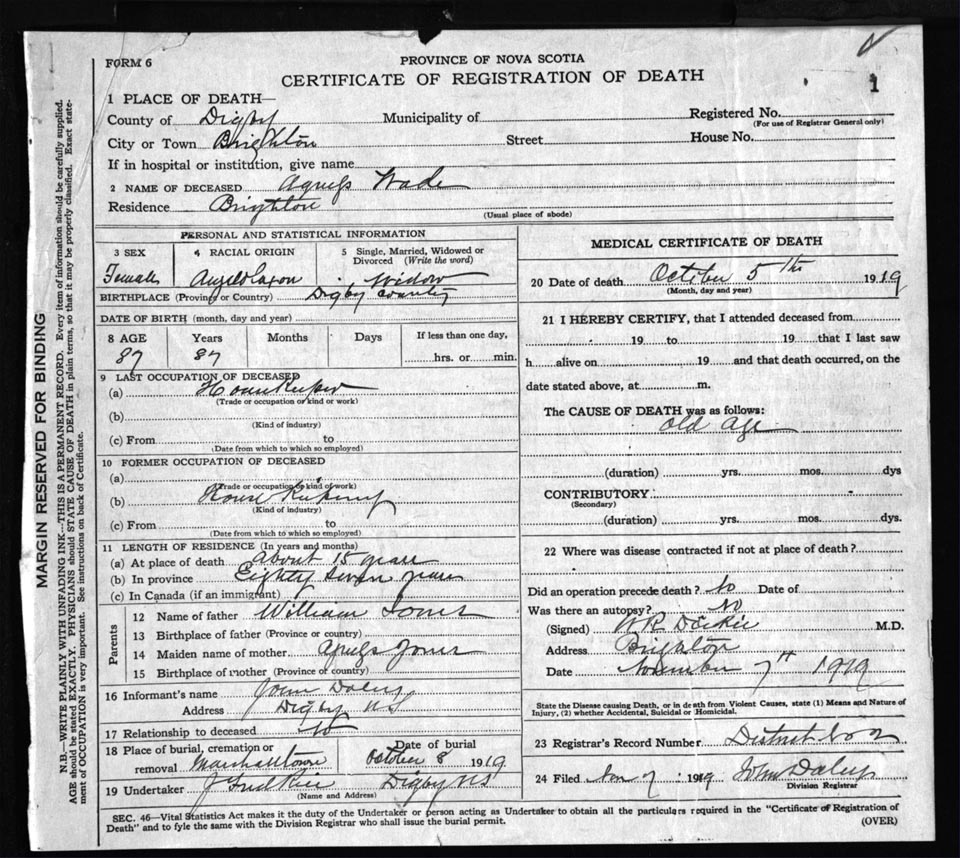 FORM 6
PROVINCE OF NOVA SCOTIA
CERTIFICATE OF REGISTRATION OF DEATH
1
1 PLACE OF DEATH—
County of Digby Municipality of Registered No.
(For use of Registrar General only)
City or Town Brighton Street House No.
If in hospital or institution, give name
2 NAME OF DECEASED Agness Wade
Residence Brighton
(Usual place of abode)
PERSONAL AND STATISTICAL INFORMATION
3 SEX 4 RACIAL ORIGIN 5 Single, Married, Widowed or Divorced (Write the word)
Female Widow
BIRTHPLACE (Province or Country) Digby County
DATE OF BIRTH (month, day and year)
8 AGE Years Months Days If less than one day,
87 87 hrs. or min.
9 LAST OCCUPATION OF DECEASED
(a)
(Trade or occupation or kind or work)
(b)
(Kind of industry)
(c) From to
(Date from which to which so employed)
10 FORMER OCCUPATION OF DECEASED
(a)
(Trade or occupation or kind of work)
(b) House
(Kind of industry)
(c) From to
(Date from which to which so employed)
11 LENGTH OF RESIDENCE (In years and months)
(a) At place of death about 15 years
(b) In province Eighty Seven years
(c) In Canada (if an immigrant)
Parents
12 Name of father William Jones
13 Birthplace of father (Province or country)
14 Maiden name of mother Agness Jones
15 Birthplace of mother (Province of country)
16 Informant's name John Daley
Address Digby NS
17 Relationship to deceased
18 Place of burial, cremation or removal Marshalltown Date of burial October 8 1919
19 Undertaker Digby NS
(Name and Address)
MEDICAL CERTIFICATE OF DEATH
20 Date of death October 5th 1919
(Month, day and year)
21 I HEREBY CERTIFY, that I attended deceased from
19 to 19 that I last saw
h alive on 19 and that death occurred, on the
date stated above, at m.
The CAUSE OF DEATH was as follows:
old Age
(duration) yrs. mos. dys
CONTRIBUTORY
(Secondary)
(duration) yrs. mos. dys.
22 Where was disease contracted if not at place of death?
Did an operation precede death? No Date of
Was there an autopsy? No
(Signed) M.D.
Address Brighton
Date November 7th 1919
State the Disease causing Death, or in death from Violent Causes, state (1) Means and Nature of
Injury, (2) whether Accidental, Suicidal or Homicidal.
23 Registrar's Record Number District No 2
24 Filed Nov 7 1919 John Daley
Division Registrar
SEC. 46—Vital Statistics Act makes it the duty of the Undertaker or person acting as Undertaker to obtain all the particulars required in the "Certificate of Registration of
Death" and to fyle the same with the Division Registrar who shall issue the burial permit. (OVER)
MARGIN RESERVED FOR BINDING
N.B.—WRITE PLAINLY WITH UNFADING INK—THIS IS A PERMANENT RECORD. Every item of information should be carefully supplied.
AGE should be stated EXACTLY. PHYSICIANS should STATE CAUSE OF DEATH in plain terms, so that it may be properly classified. Exact state-
ment of OCCUPATION is very important. See instructions on back of Certificate.